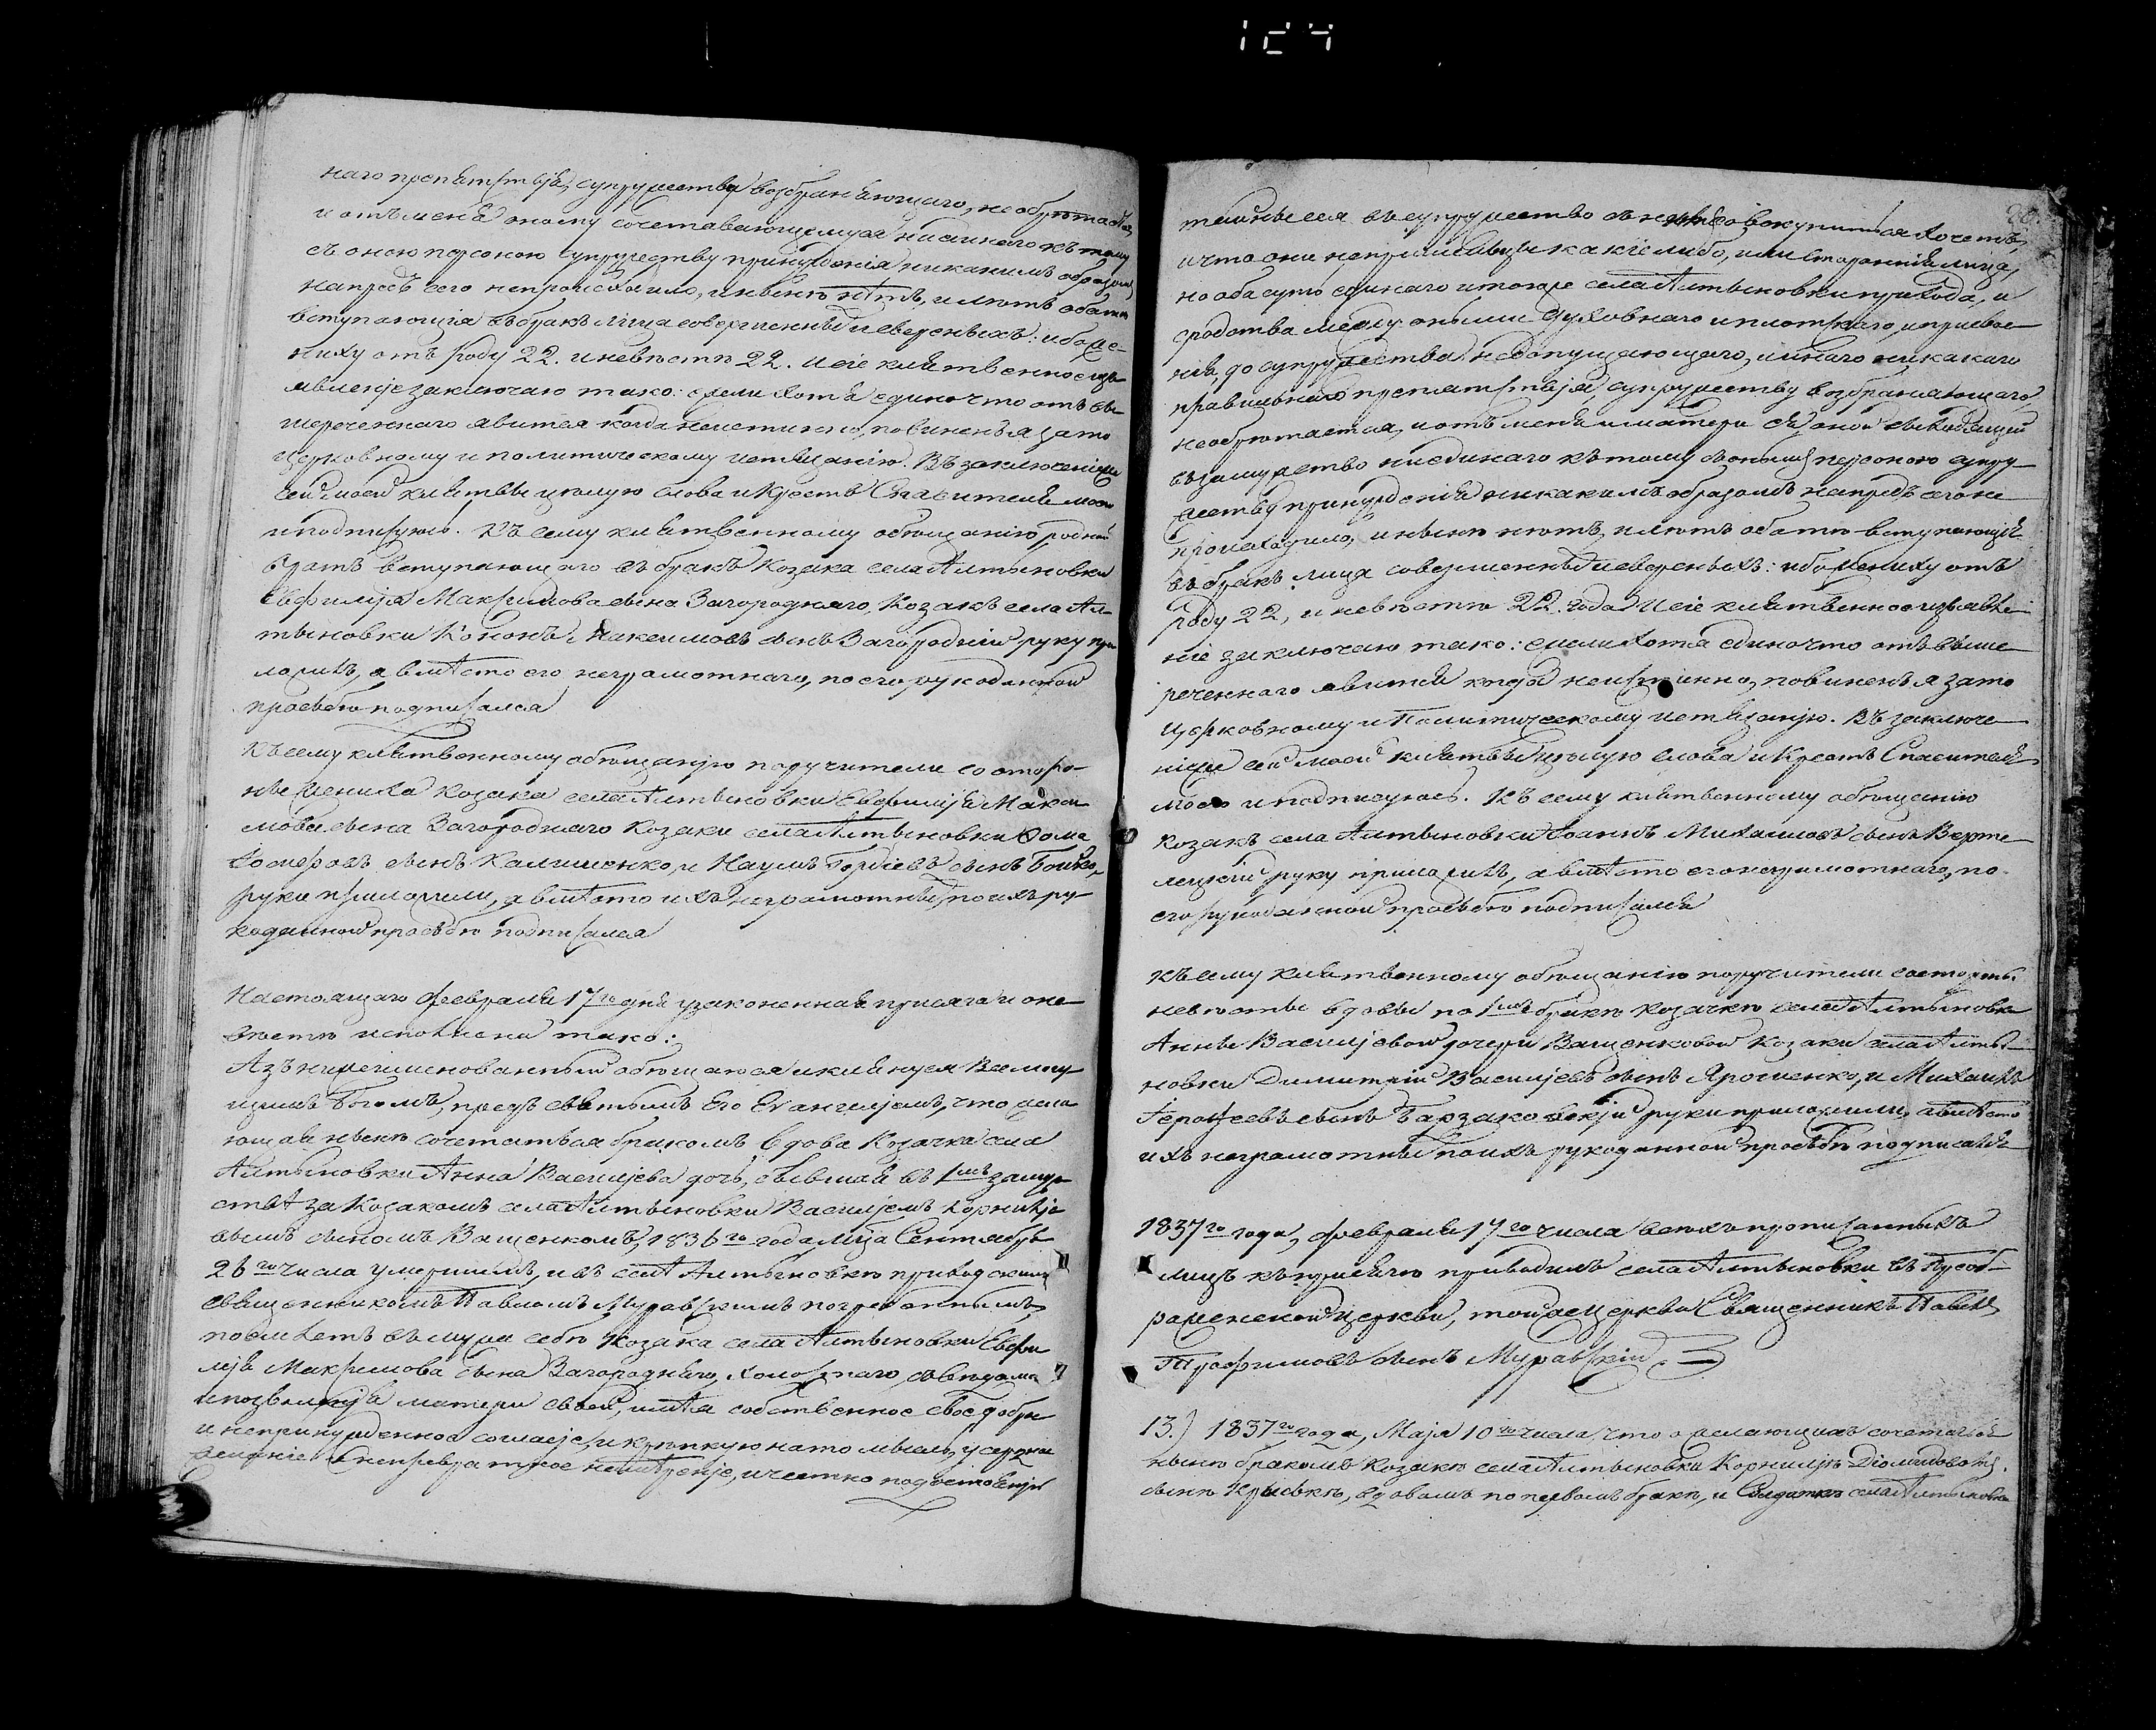 124
наго препятствія, супружества возбраняющаго, не обрѣтается,
и отъ меня оному сочетавающемуся ниединаго къ тому
съ оною персоною супружеству принужденія никакимъ образомъ
напредъ сего непроисходило, и нынѣ нѣтъ, и лѣтъ обатѣ
вступающія въ бракъ лица совершенныхъ и сверсныхъ: ибо же-
ниху отъ роду 22. и невѣстѣ 22. И сіе клятвенное изъ-
явленіе заключаю тако: ежели хотя едино что отъ вы-
шереченнаго явится когда неистинно, повиненъ я за то
церковному и политическому истязанію. Въ заключеніи
сей моей клятвы цѣлую слова и крестъ Спасителя моего
и подписуюсь. Къ сему клятвенному обѣщанію родный
братъ вступающаго въ бракъ Козака села Алтыновки
Евфимія Максимова сына Загороднаго, Козакъ села Ал-
тыновки Кононъ Максимовъ сынъ Загородній руку при-
ложилъ, а вмѣсто его неграмотнаго, по его рукоданной
прозьбѣ подписался
Къ сему клятвенному обѣщанію поручители со сторо-
ны жениха козака села Алтыновки Евфимія Макси-
мова сына Загороднаго козаки села Алтыновки Фома
сынъ Калишенко, и Наумъ Гордіевъ сынъ Бойко,
руки приложили, а вмѣсто ихъ неграмотныхъ по ихъ ру-
коданной прозьбѣ подписался
Настоящаго февраля 17го дня узаконенная присяга и о не-
вѣстѣ исполнена тако:
Азъ нижеименованный обѣщаюся и клянуся Всемогу-
щимъ Богомъ, предъ святымъ Его Евангеліемъ, что жела-
ющая нынѣ сочетаться бракомъ вдова Козачка села
Алтыновки Анна Василіева дочь, бывшая въ 1мъ замуж-
ствѣ за Козакомъ села Алтыновки Василіемъ Корниліе-
вымъ сыномъ Ващенкомъ, 1836го года мца Сентября
26го числа умершимъ, и въ селѣ Алтыновкѣ приходскимъ
священникомъ Павломъ Муравскимъ погребеннымъ,
поемлетъ въ мужи себѣ Козака села Алтыновки Евфи-
мія Максимова сына Загороднаго, холостаго, съ вѣдома
и позволенія матери своей, имѣя собственное свое доброе
и непринужденное согласіе, и крѣпкую на то мысль, усердное
желаніе и непревратное намѣреніе, и честно по достоянію
28.
тайнѣ сея въ супружество съ нимъ совокупиться хочетъ,
и что они непришельцы какіе либо, или сторонныя лица,
но оба суто единаго и тогоже села Алтыновки прихода, и
сродства между оными духовнаго и плотскаго, и присвое-
нія, до супружества недопущающаго, и инаго никакаго
правильнаго препятствія, супружеству возбраняющаго,
необрѣтается, и отъ меня и матери ея оной выходящей
въ замужство ниединаго къ тому съ оною персоною супру-
жеству принужденія никакимъ образомъ напредъ сего не
происходило, и нынѣ нѣтъ, и лѣтъ обатѣ вступающія
въ бракъ лица совершенныхъ и сверсныхъ: ибо жениху отъ
роду 22, и невѣстѣ 22. года И сіе клятвенное изъявле-
ніе заключаю тако: ежели хотя едино что отъ выше-
реченнаго явится когда неистинно, повиненъ я за то
церковному и Политическому истязанію. Въ заключе-
ніи сей моей клятвы цѣлую слова и Крестъ Спасителя
моего и подписуюсь. Къ сему клятвенному обѣщанію
козакъ села Алтыновки Іоаннъ Михаиловъ сынъ Верте-
лецкій руку приложилъ, а вмѣсто его неграмотнаго, по
его рукоданной прозьбѣ подписался
Къ сему клятвенному обѣщанію поручители со стороны
невѣсты вдовы по 1мъ бракѣ козачкѣ села Алтыновки
Анны Василіевой дочери Ващенковой козаки села Алты-
новки Димитрій Василіевъ сынъ Ярошенко, и Михаилъ
Герофеевъ сынъ руки приложили, а вмѣсто
ихъ неграмотныхъ по ихъ рукоданной прозьбѣ подписался
1837го года, февраля 17го числа всѣхъ прописанныхъ
лицъ къ присягѣ приводилъ села Алтыновки въ Преоб-
раженской церкви, той же церкви Священникъ Павелъ
Трофимовъ сынъ Муравскій
13.) 1837го года, Маія 10го числа, что о желающихъ сочетаться
нынѣ бракомъ Козакѣ села Алтыновки Корниліѣ Діомидовомъ
сынѣ Крыскѣ, вдовомъ по первомъ бракѣ, и Солдаткѣ села Алтыновки